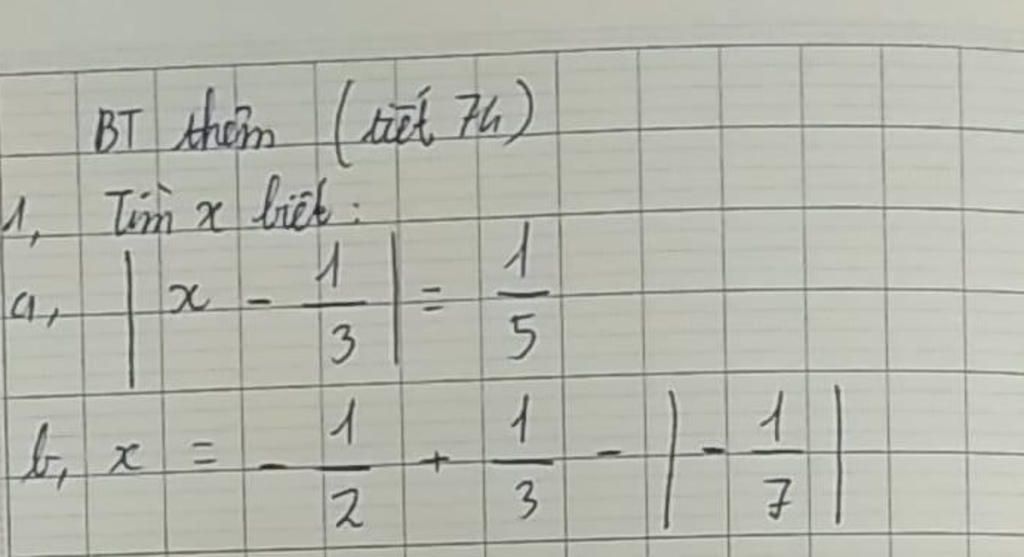 BT thêm (tiết 74)
1, Tìm x biết:
a, | x - 1/3 | = 1/5
b, x = - 1/2 + 1/3 - | - 1/7 |